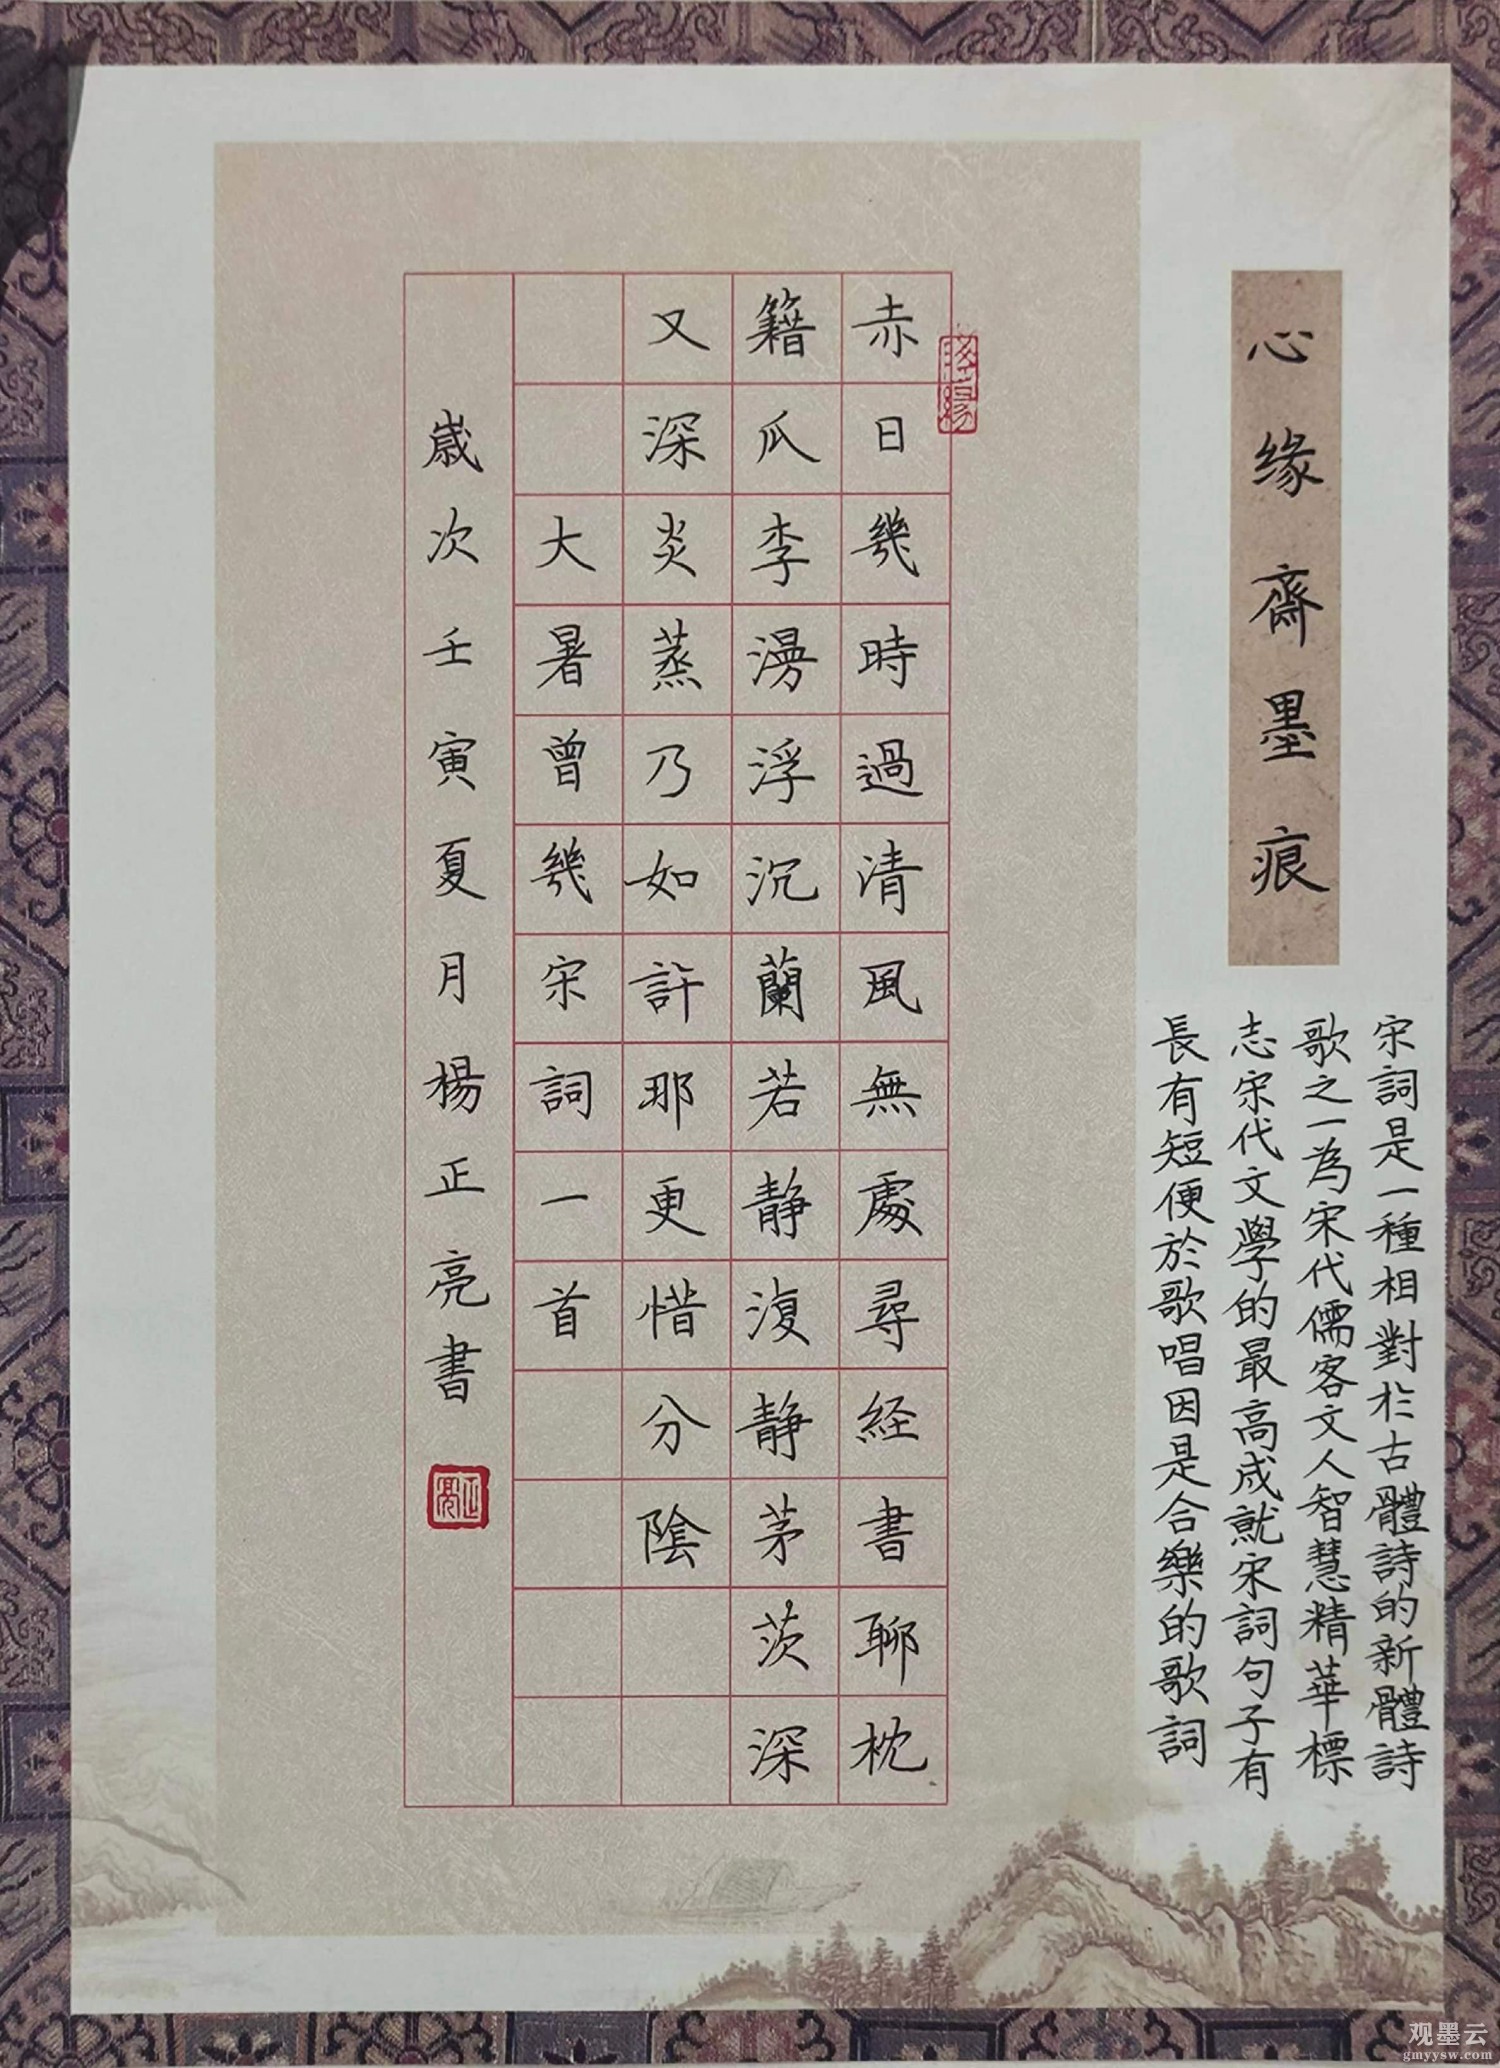 心缘齋墨痕
宋詞是一種相對於古體詩的新體詩
歌之一為宋代儒客文人智慧精華標
志宋代文學的最高成就宋詞句子有
長有短便於歌唱因是合樂的歌詞
赤日幾時過清風無處尋経書聊枕
籍瓜李漫浮沉蘭若静復静茅茨深
又深炎蒸乃如許那更惜分陰
大暑曾幾宋詞一首
歲次壬寅夏月楊正亮書
正亮
观墨云
gmyysw.com